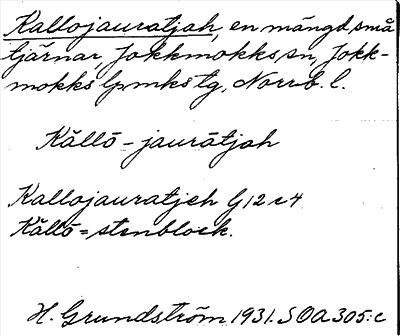 Kallojauratjah, en mängd små
tjärnar, Jokkmokks sn, Jokk-
mokks lpmks tg, Norrb. l.
Kållō - jaurātjah
Kallojauratjeh G 12 c 4
Kållō = stenblock.
H. Grundström 1931. SOA 305:c